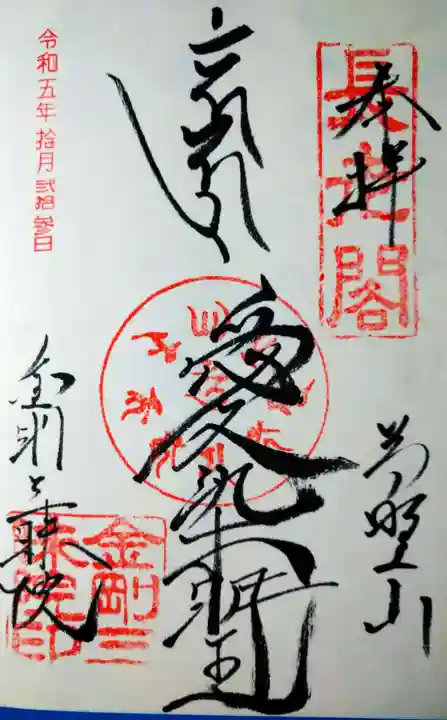 奉拝
長老閣
高野山
愛染明王
令和五年拾月弐拾参日
金剛三昧院
金剛三昧院印